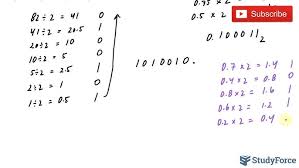 82÷2 = 41 0
41÷2 = 20.5 1
20÷2 = 10 0
10÷2 = 5 0
5÷2 = 2.5 1
2÷2 = 1 0
1÷2 = 0.5 1
1010010.
0.5 x 2
0.100011₂
0.7 x 2 = 1.4 1
0.4 x 2 = 0.8 0
0.8 x 2 = 1.6 1
0.6 x 2 = 1.2 1
0.2 x 2 = 0.4
Subscribe
StudyForce